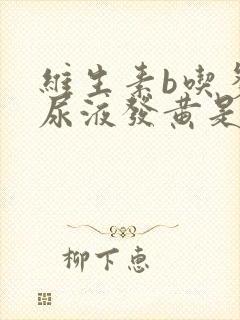 維生素b喫
尿液發黃是
柳下惠